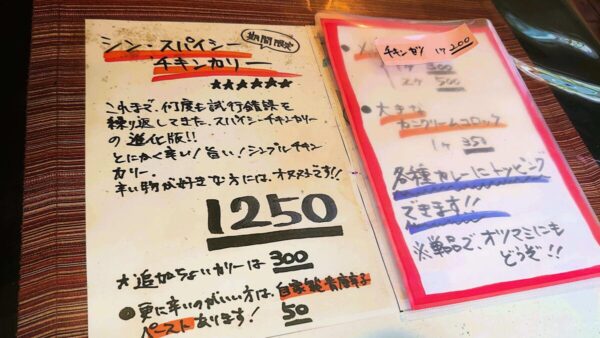 期間限定
シン・スパイシー
チキンカリー
★★★★★★
これまで、何度も試行錯誤を
繰り返してきた、スパイシーチキンカリー
の進化版!!
とにかく辛い!旨い!シンプルチキン
カリー。
辛い物が好きな方には、オススメです!!
1250
★追加ちょいカリーは 300
●更に辛いのがいい方は、自家製青唐辛子
ペーストあります! 50
チキンカツ 1ケ 200
1ケ 300
2ケ 500
●大きな
カニクリームコロッケ
1ケ 350
各種カレーにトッピング
できます!!
※単品で、オツマミにも
どうぞ!!